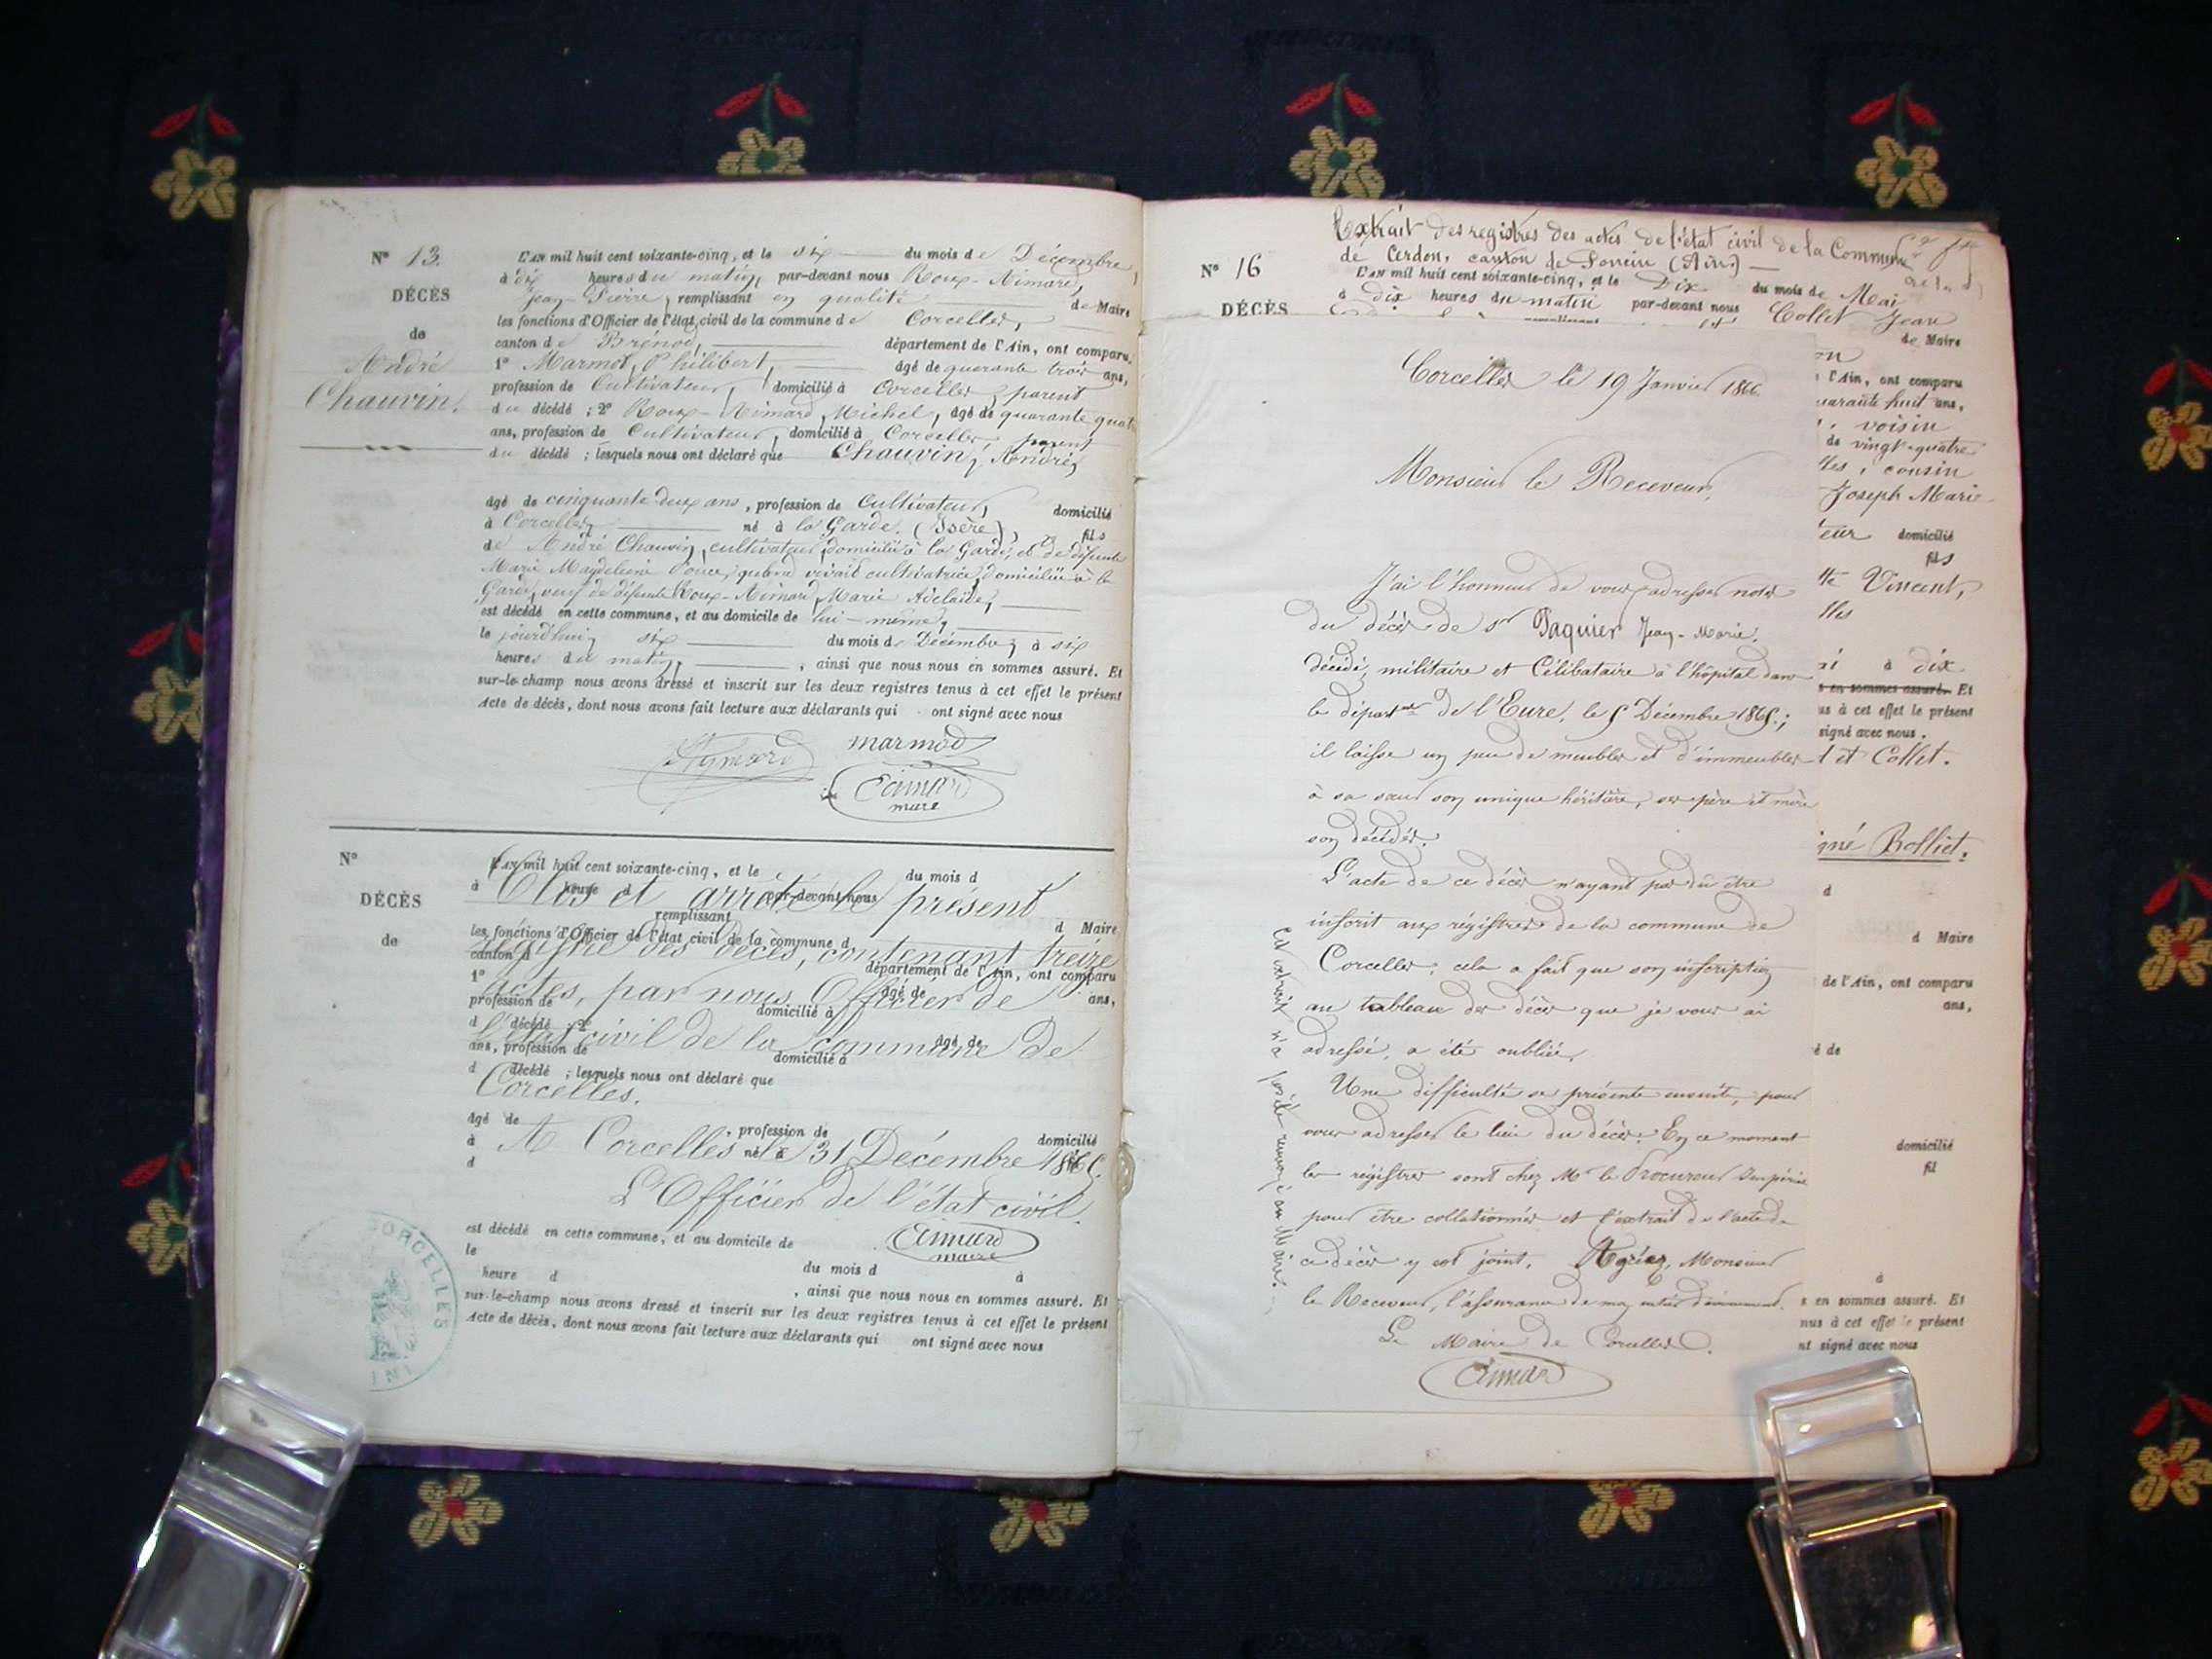 N° 13.
DÉCÈS
de
André
Chauvin.
L'AN mil huit cent soixante-cinq, et le six du mois de Décembre,
à dix heures du matin, par-devant nous Roux-Aimard,
Jean-Pierre, remplissant en qualité de Maire
les fonctions d'Officier de l'état civil de la commune de Corcelles,
canton de Brénod, département de l'Ain, ont comparu
1° Marmot, Philibert, âgé de quarante trois ans,
profession de Cultivateur, domicilié à Corcelles, parent
du décédé ; 2° Roux-Aimard, Michel, âgé de quarante quatre
ans, profession de Cultivateur, domicilié à Corcelles, parent
du décédé ; lesquels nous ont déclaré que Chauvin, André,
âgé de cinquante deux ans, profession de Cultivateur, domicilié
à Corcelles, né à la Garde. (Isère), fils
de André Chauvin, cultivateur, domicilié à la Garde, et de défunte
Marie Magdeleine quand vivait cultivatrice, domiciliée à la
Garde, veuf de défunte Roux-Aimard, Marie Adélaïde,
est décédé en cette commune, et au domicile de lui-même,
le jourd'hui, six du mois de Décembre, à six
heures du matin, , ainsi que nous nous en sommes assuré. Et
sur-le-champ nous avons dressé et inscrit sur les deux registres tenus à cet effet le présent
Acte de décès, dont nous avons fait lecture aux déclarants qui ont signé avec nous
marmod
Aimard
maire
N°
DÉCÈS
de
L'AN mil huit cent soixante-cinq, et le du mois d
à heure d par-devant nous
Clos et arrêté le présent
remplissant d Maire
les fonctions d'Officier de l'état civil de la commune d
registre des décès, contenant treize
canton d département de l'Ain, ont comparu
1° âgé de ans,
actes, par nous, Officier de
profession de domicilié à
d décédé ; 2° âgé de
l'état civil de la commune de
ans, profession de domicilié à
d décédé ; lesquels nous ont déclaré que
Corcelles.
âgé de , profession de domicilié
à né à fil
A Corcelles le 31 Décembre 1865.
d
L'Officier de l'état civil.
est décédé en cette commune, et au domicile de
Aimard
maire
le du mois d à
heure d , ainsi que nous nous en sommes assuré. Et
sur-le-champ nous avons dressé et inscrit sur les deux registres tenus à cet effet le présent
Acte de décès, dont nous avons fait lecture aux déclarants qui ont signé avec nous
CORCELLES
AIN
Extrait des registres des actes de l'état civil de la Commune
de Cerdon, canton de Poncin (Ain)
N° 16
DÉCÈS
L'AN mil huit cent soixante-cinq, et le Dix du mois de Mai
à dix heures du matin par-devant nous Collet Jean
de Maire
on
l'Ain, ont comparu
quarante huit ans,
, voisin
de vingt-quatre
lles, cousin
Joseph Marie
teur domicilié
fils
tte Vincent,
lles
à dix
s en sommes assuré. Et
us à cet effet le présent
signé avec nous.
t et Collet.
gné Bolliet.
d
d Maire
de l'Ain, ont comparu
ans,
é de
domicilié
fil
à
s en sommes assuré. Et
nus à cet effet le présent
nt signé avec nous
Corcelles le 19 Janvier 1866.
Monsieur le Receveur,
J'ai l'honneur de vous adresser note
du décès de sr Paquier Jean-Marie,
décédé, militaire et Célibataire à l'hôpital dans
le départmt de l'Eure, le 5 Décembre 1865.;
il laisse un peu de meubles et d'immeubles
à sa sœur son unique héritière, ses père et mère
son décédés.
L'acte de ce décès n'ayant pas dû être
inscrit aux régistres de la commune de
Corcelles, cela a fait que son inscription
au tableau des décès que je vous ai
adressé, a été oubliée.
Une difficulté se présente ensuite, pour
vous adresser le lieu du décès. En ce moment
les régistres sont chez Mr le Procureur Impérial
pour être collationnés et l'extrait de l'acte de
ce décès y est joint. Agréez, Monsieur
le Receveur, l'assurance de mon entier dévouement.
Le Maire de Corcelles.
Aimard
Cet extrait n'a été renvoyé au Maire.